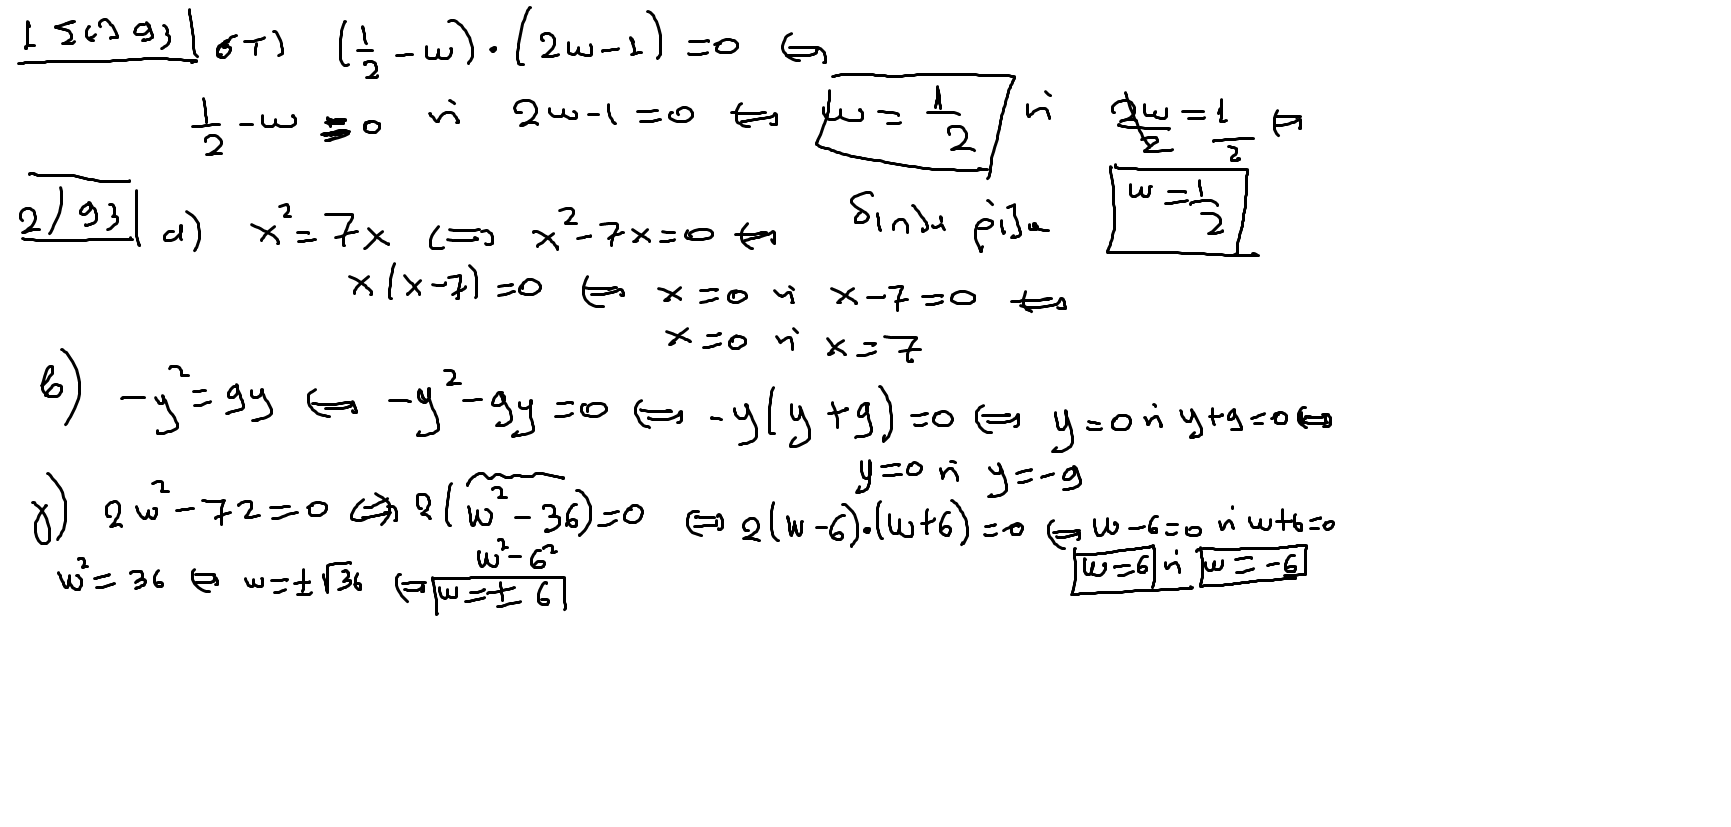 1 Σελ 93 στ) (1/2 - w) · (2w - 1) = 0 ⇔
1/2 - w = 0 ή 2w - 1 = 0 ⇔ w = 1/2 ή 2w/2 = 1/2 ⇔
w = 1/2
2/93 α) x² = 7x ⇔ x² - 7x = 0 ⇔ διπλή ρίζα
x(x - 7) = 0 ⇔ x = 0 ή x - 7 = 0 ⇔
x = 0 ή x = 7
β) -y² = 9y ⇔ -y² - 9y = 0 ⇔ -y(y + 9) = 0 ⇔ y = 0 ή y + 9 = 0 ⇔
y = 0 ή y = -9
γ) 2w² - 72 = 0 ⇔ 2(w² - 36) = 0 ⇔ 2(w - 6)·(w + 6) = 0 ⇔ w - 6 = 0 ή w + 6 = 0
w² - 6²
w = 6 ή w = -6
w² = 36 ⇔ w = ±√36 ⇔ w = ± 6